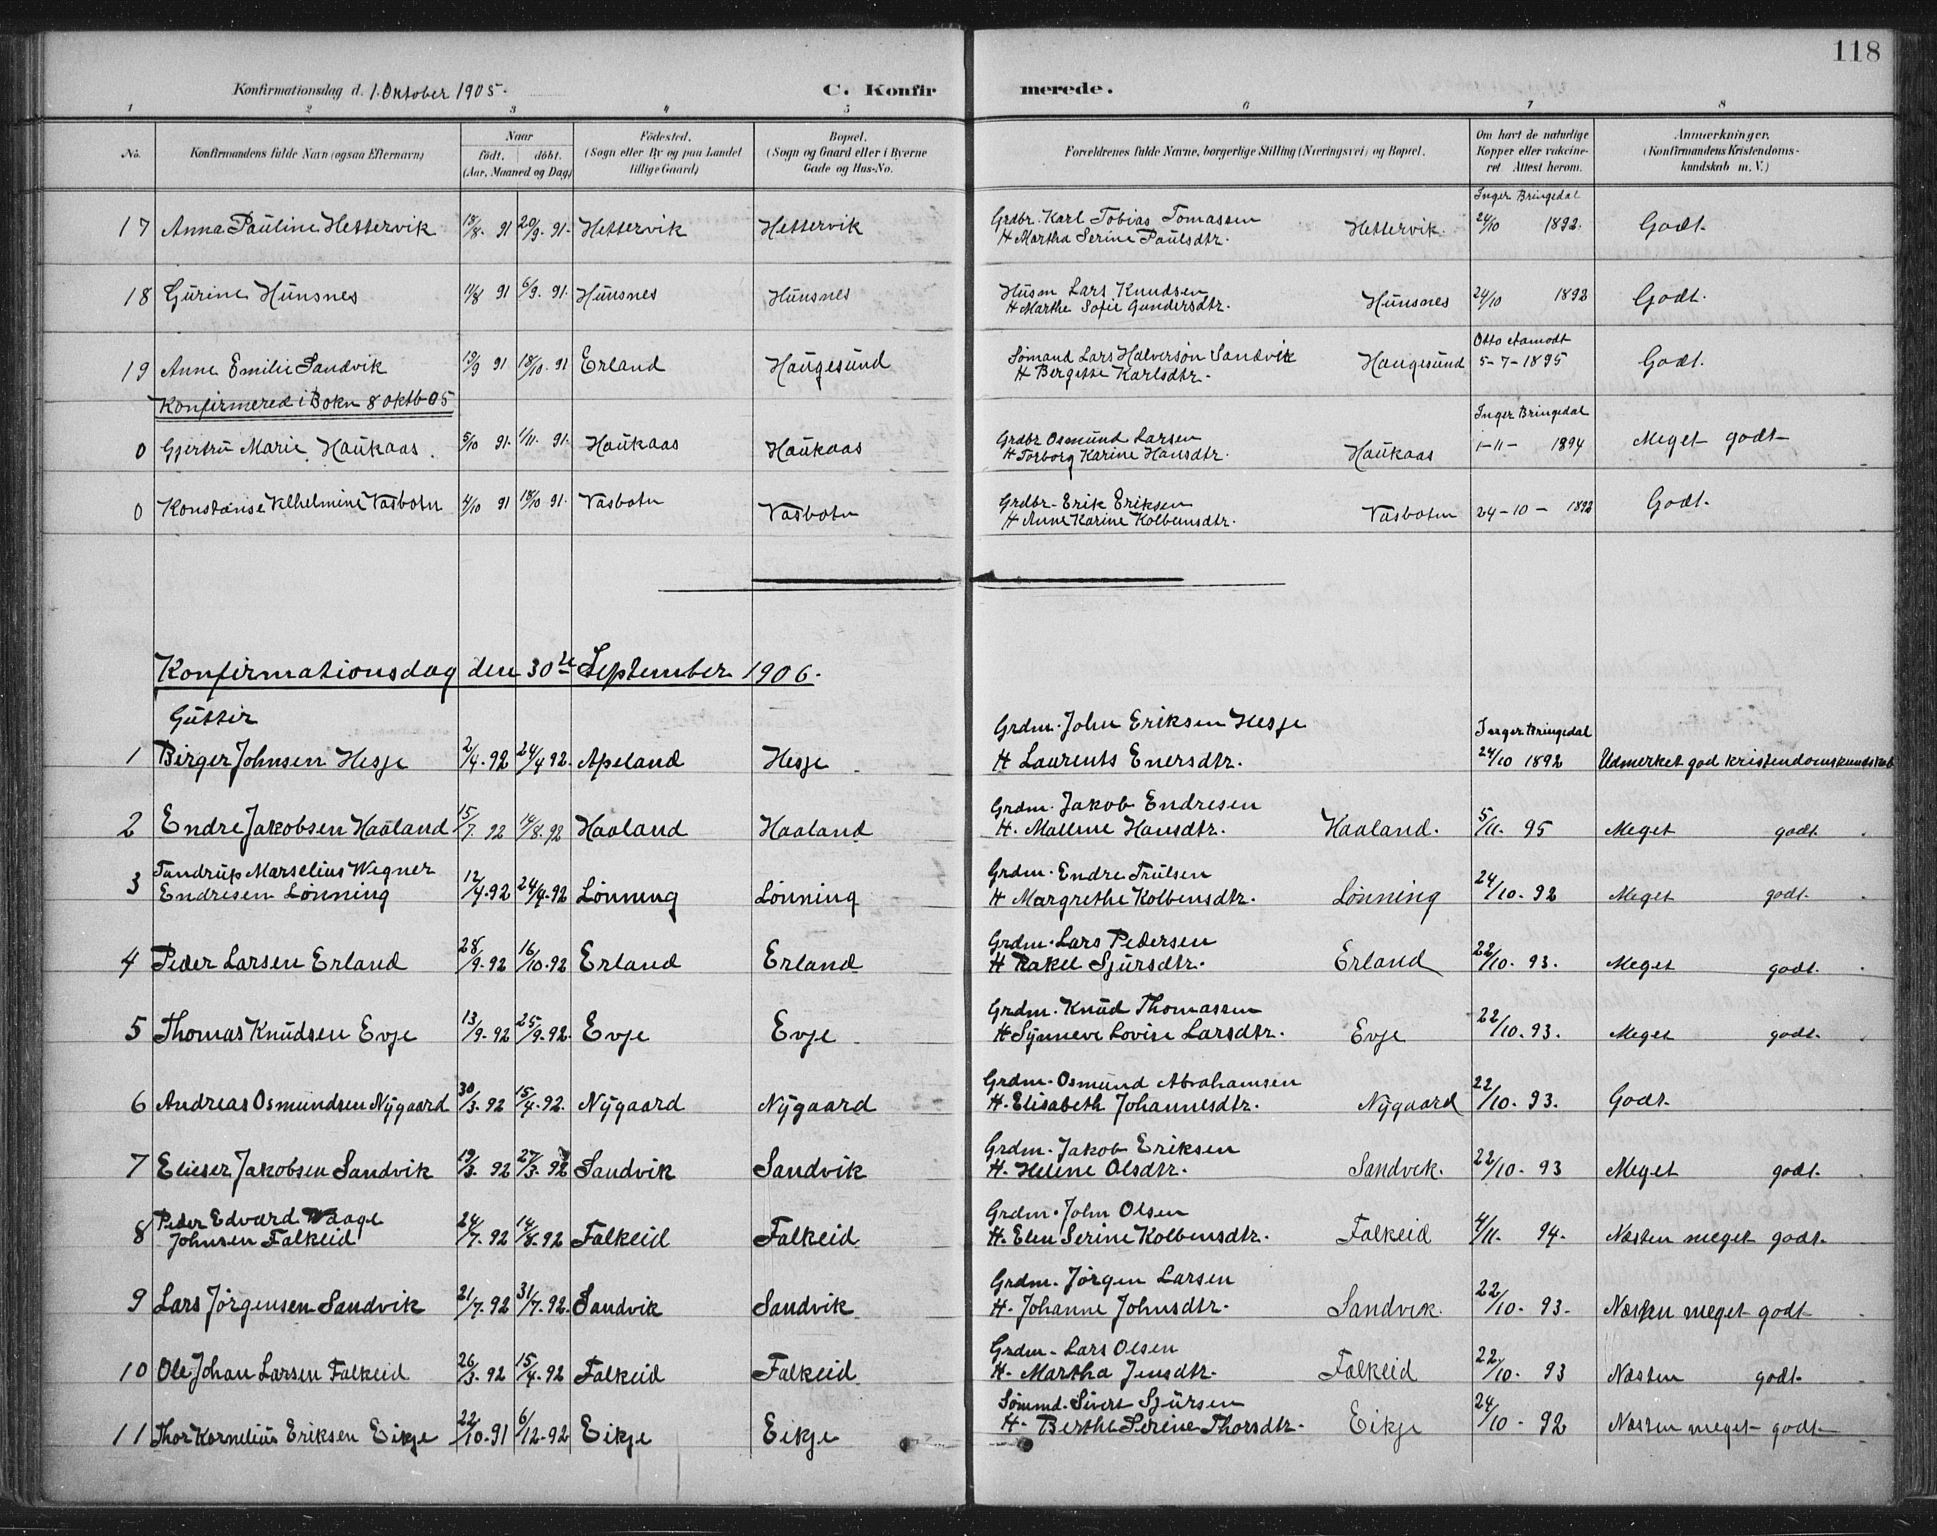 118
Konfirmationsdag d. 1. Oktober 1905. C. Konfirmerede.
1 2 3 4 5 6 7 8
No. Konfirmandens fulde Navn (ogsaa Efternavn) Naar født. døbt. (Aar, Maaned og Dag) Födested. (Sogn eller By og paa Landet tillige Gaard) Bopæl. (Sogn og Gaard eller i Byerne Gade og Hus-No. Forældrenes fulde Navne, borgerlige Stilling (Næringsvei) og Bopæl. Om havt de naturlige Kopper eller vakcineret Attest herom. Anmærkninger, (Konfirmandens Kristendomskundskab m. V.)
Inger Bringedal
17 Anna Pauline Hettervik 19/8. 91 20/9. 91. Hettervik Hettervik Grdbr. Karl Tobias Tomassen Hettervik. 24/10 1892. Godt.
H Martha Serine Paulsdtr.
18 Gurine Hunsnes 11/8 91 6/9. 91. Hunsnes Hunsnes Husm Lars Knudsen Hunsnes 24/10 1892 Godt.
H Marthe Sofie Gundersdtr.
Otto Aamodt
19 Anne Emilie Sandvik 19/9 91 18/10. 91 Erland Haugesund Sömand Lars Halversøn Sandvik Haugesund 5-7-1895 Godt.
H Bergitte Karlsdtr.
Konfirmered i Bokn 8 oktb 05
Inger Bringedal
0 Gjertru Marie Haukaas. 5/10 91. 1/11. 91. Haukaas Haukaas Grdbr Osmund Larsen Haukaas 1-11- 1894 Meget godt
H Torborg Karine Hansdtr.
0 Konstanse Vilhelmine Vasbotn 4/10 91 18/10 91. Vasbotn Vasbotn Grdbr. Erik Eriksen Vasbotn 24-10- 1892 Godt.
H Anne Karine Kolbensdtr.
Konfirmationsdag den 30te September 1906.
Gutter
Grdm. John Eriksen Hesje Inger Bringedal
1 Birger Johnsen Hesje 2/4. 92 24/4 92. Apeland Hesje H Laurents Enersdtr. 24/10 1892 Udmerket god kristendomskundskab
Grdm. Jakob Endresen
2 Endre Jakobsen Haaland 15/7. 92 14/8. 92 Haaland Haaland H. Mallene Hansdtr. Haaland. 5/11. 95 Meget godt.
Tandrup Marselius Wegner Grdm. Endre Trulsen
3 Endresen Lønning 12/4. 92 24/4. 92 Lønning Lønning H Margrethe Kolbensdtr. Lønning 24/10. 92 Meget godt.
Grdm. Lars Pedersen
4 Peder Larsen Erland 28/9. 92 16/10. 92 Erland Erland H Rakel Sjursdtr. Erland 22/10. 93. Meget godt.
Grdm. Knud Thomassen
5 Thomas Knudsen Evje 13/9. 92 25/9. 92. Evje Evje H Synneve Lovise Larsdtr. Evje 22/10. 93. Meget godt.
Grdm. Osmund Abrahamsen
6 Andreas Osmundsen Nygaard 30/3. 92 15/4. 92. Nygaard Nygaard H. Elisabeth Johannesdtr. Nygaard 22/10. 93. Godt.
Grdm. Jakob Eriksen
7 Elieser Jakobsen Sandvik 19/3. 92 27/3. 92 Sandvik Sandvik H. Helene Olsdtr. Sandvik. 22/10. 93 Meget godt.
Peder Edvard Waage Grdm. John Olsen
8 Johnsen Falkeid 24/7. 92 14/8. 92 Falkeid Falkeid H. Elen Serine Kolbensdtr. Falkeid 4/11. 94. Næsten meget godt.
Grdm. Jørgen Larsen
9 Lars Jørgensen Sandvik 21/7. 92 31/7. 92. Sandvik Sandvik H. Johanne Johnsdtr. Sandvik. 22/10. 93. Næsten meget godt
Grdm. Lars Olsen
10 Ole Johan Larsen Falkeid 26/3. 92 15/4. 92 Falkeid Falkeid H. Martha Jensdtr. Falkeid 22/10. 93 Næsten godt.
Sømmd. Sivert Sjursen
11 Thor Kornelius Eriksen Eikje 22/10. 91 6/12. 92 Eikje Eikje H. Berthe Serine Thorsdtr. Eikje 24/10. 92 Næsten meget godt